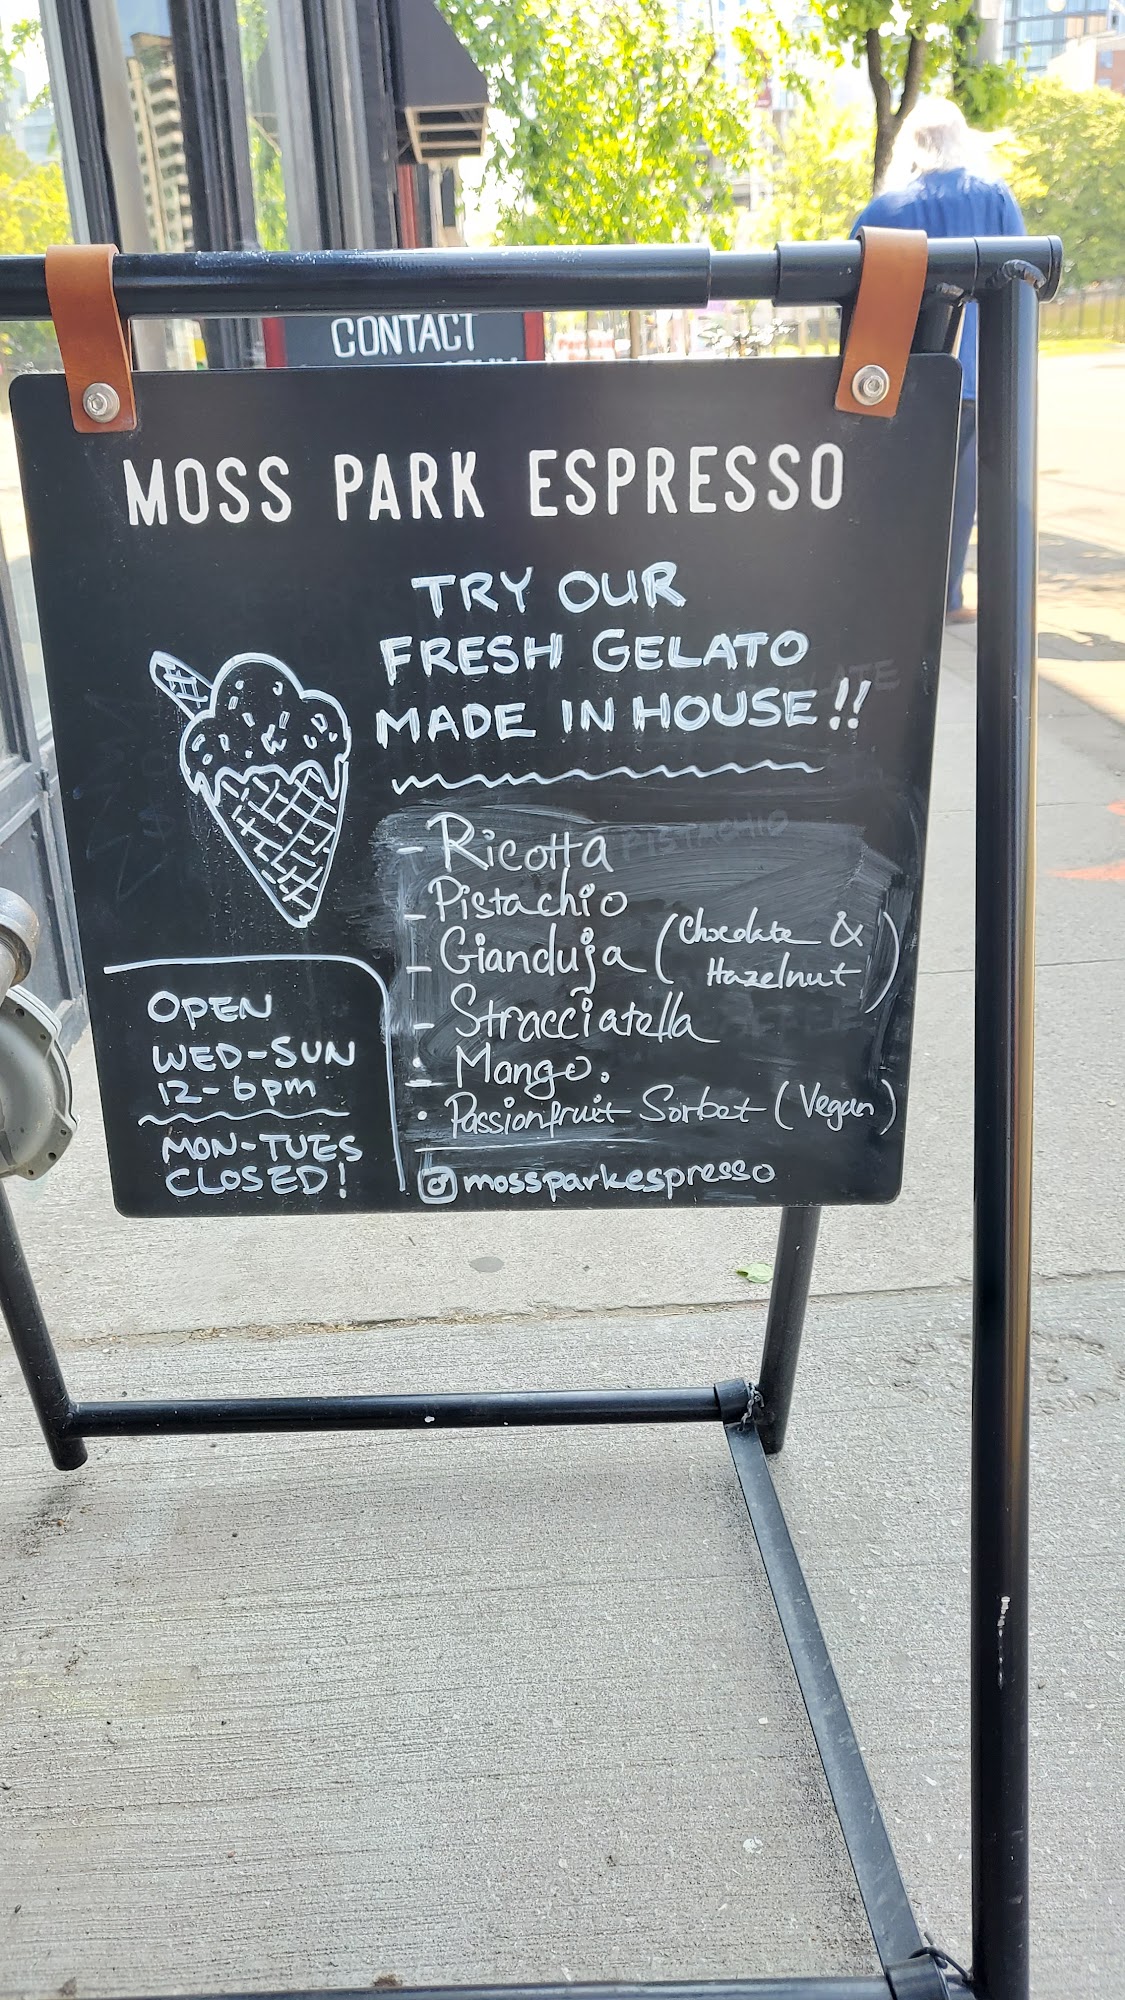 CONTACT
MOSS PARK ESPRESSO
TRY OUR
FRESH GELATO
MADE IN HOUSE!!
- Ricotta
- Pistachio
- Gianduja (Chocolate & Hazelnut)
- Stracciatella
- Mango.
• Passionfruit Sorbet (Vegan)
@mossparkespresso
OPEN
WED-SUN
12-6pm
MON-TUES
CLOSED!
PISTACHIO